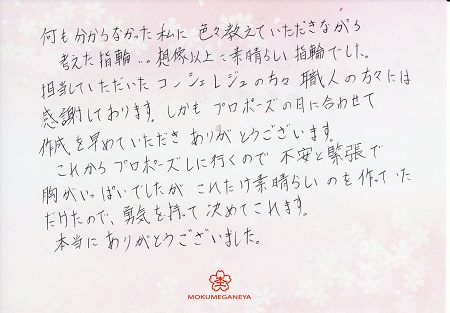 何も分からなかった私に 色々教えていただきながら
考えた指輪…。想像以上に素晴らしい指輪でした。
担当していただいた コンシェルジュの方々 職人の方々には
感謝しております。しかも プロポーズの日に合わせて
作成を早めていただき ありがとうございます。
これから プロポーズしに行くので 不安と緊張で
胸がいっぱいでしたが これだけ素晴らしいのを作っていた
だけたので、勇気を持って 決めてこれます。
本当に ありがとうございました。
MOKUMEGANEYA